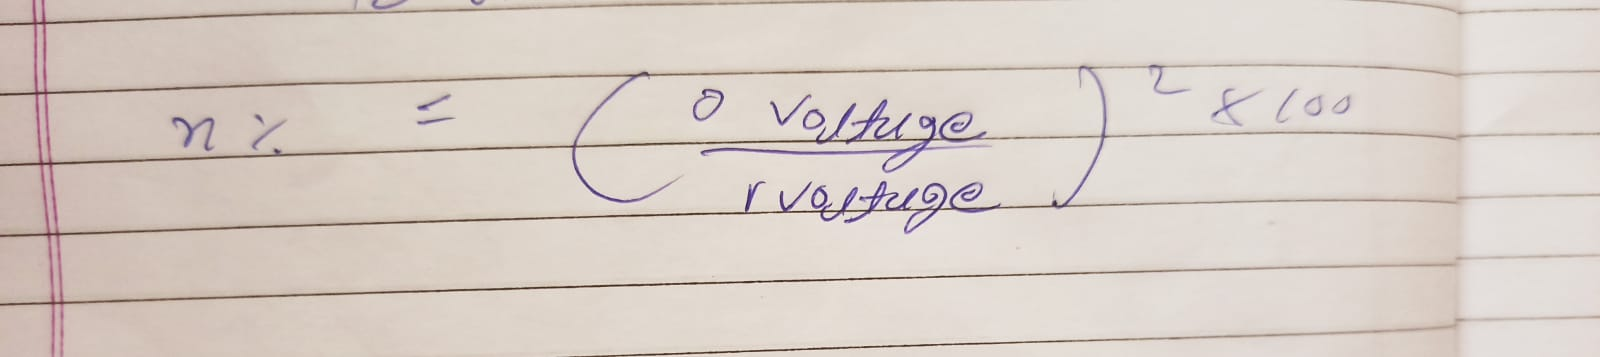 n% = (o voltuge / r voltuge)² × 100